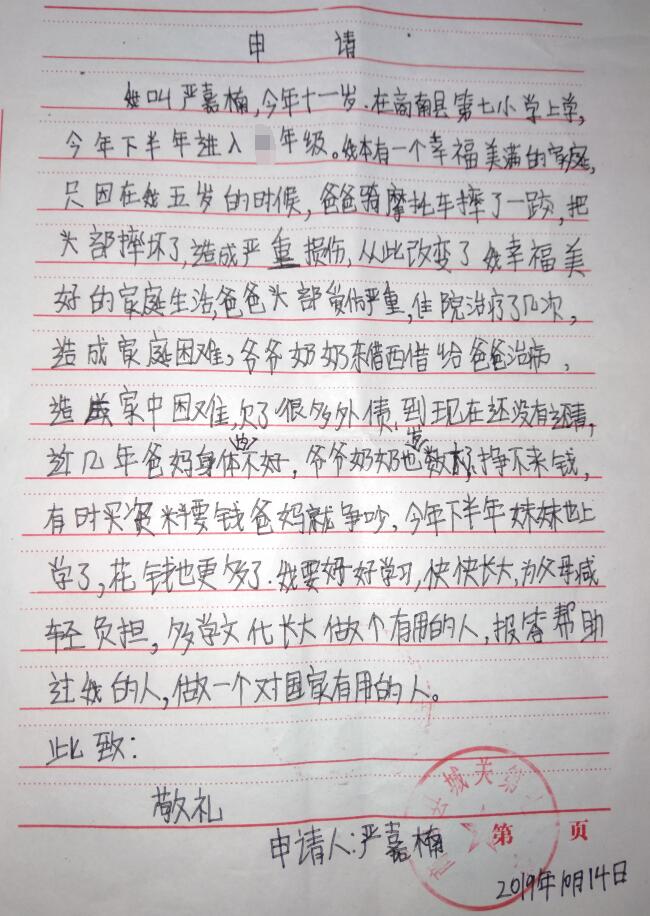 申 请
我叫严嘉楠,今年十一岁.在商南县第七小学上学,
今年下半年进入 年级。我本有一个幸福美满的家庭,
只因在我五岁的时候,爸爸骑摩托车摔了一跤,把
头部摔坏了,造成严重损伤,从此改变了我幸福美
好的家庭生活,爸爸头部受伤严重,住院治疗了几次,
造成家庭困难,爷爷奶奶东借西借给爸爸治病,
造成家中困难,欠了很多外债,到现在还没有还清,
近几年爸妈身体也不好,爷爷奶奶也 了,挣不来钱,
有时买资料要钱爸妈就争吵,今年下半年妹妹也上
学了,花钱也更多了.我要好好学习,快快长大,为父母减
轻负担,多学文化长大做个有用的人,报答帮助
过我的人,做一个对国家有用的人。
此致:
敬礼
申请人:严嘉楠
城关第
第 页
2019年10月14日